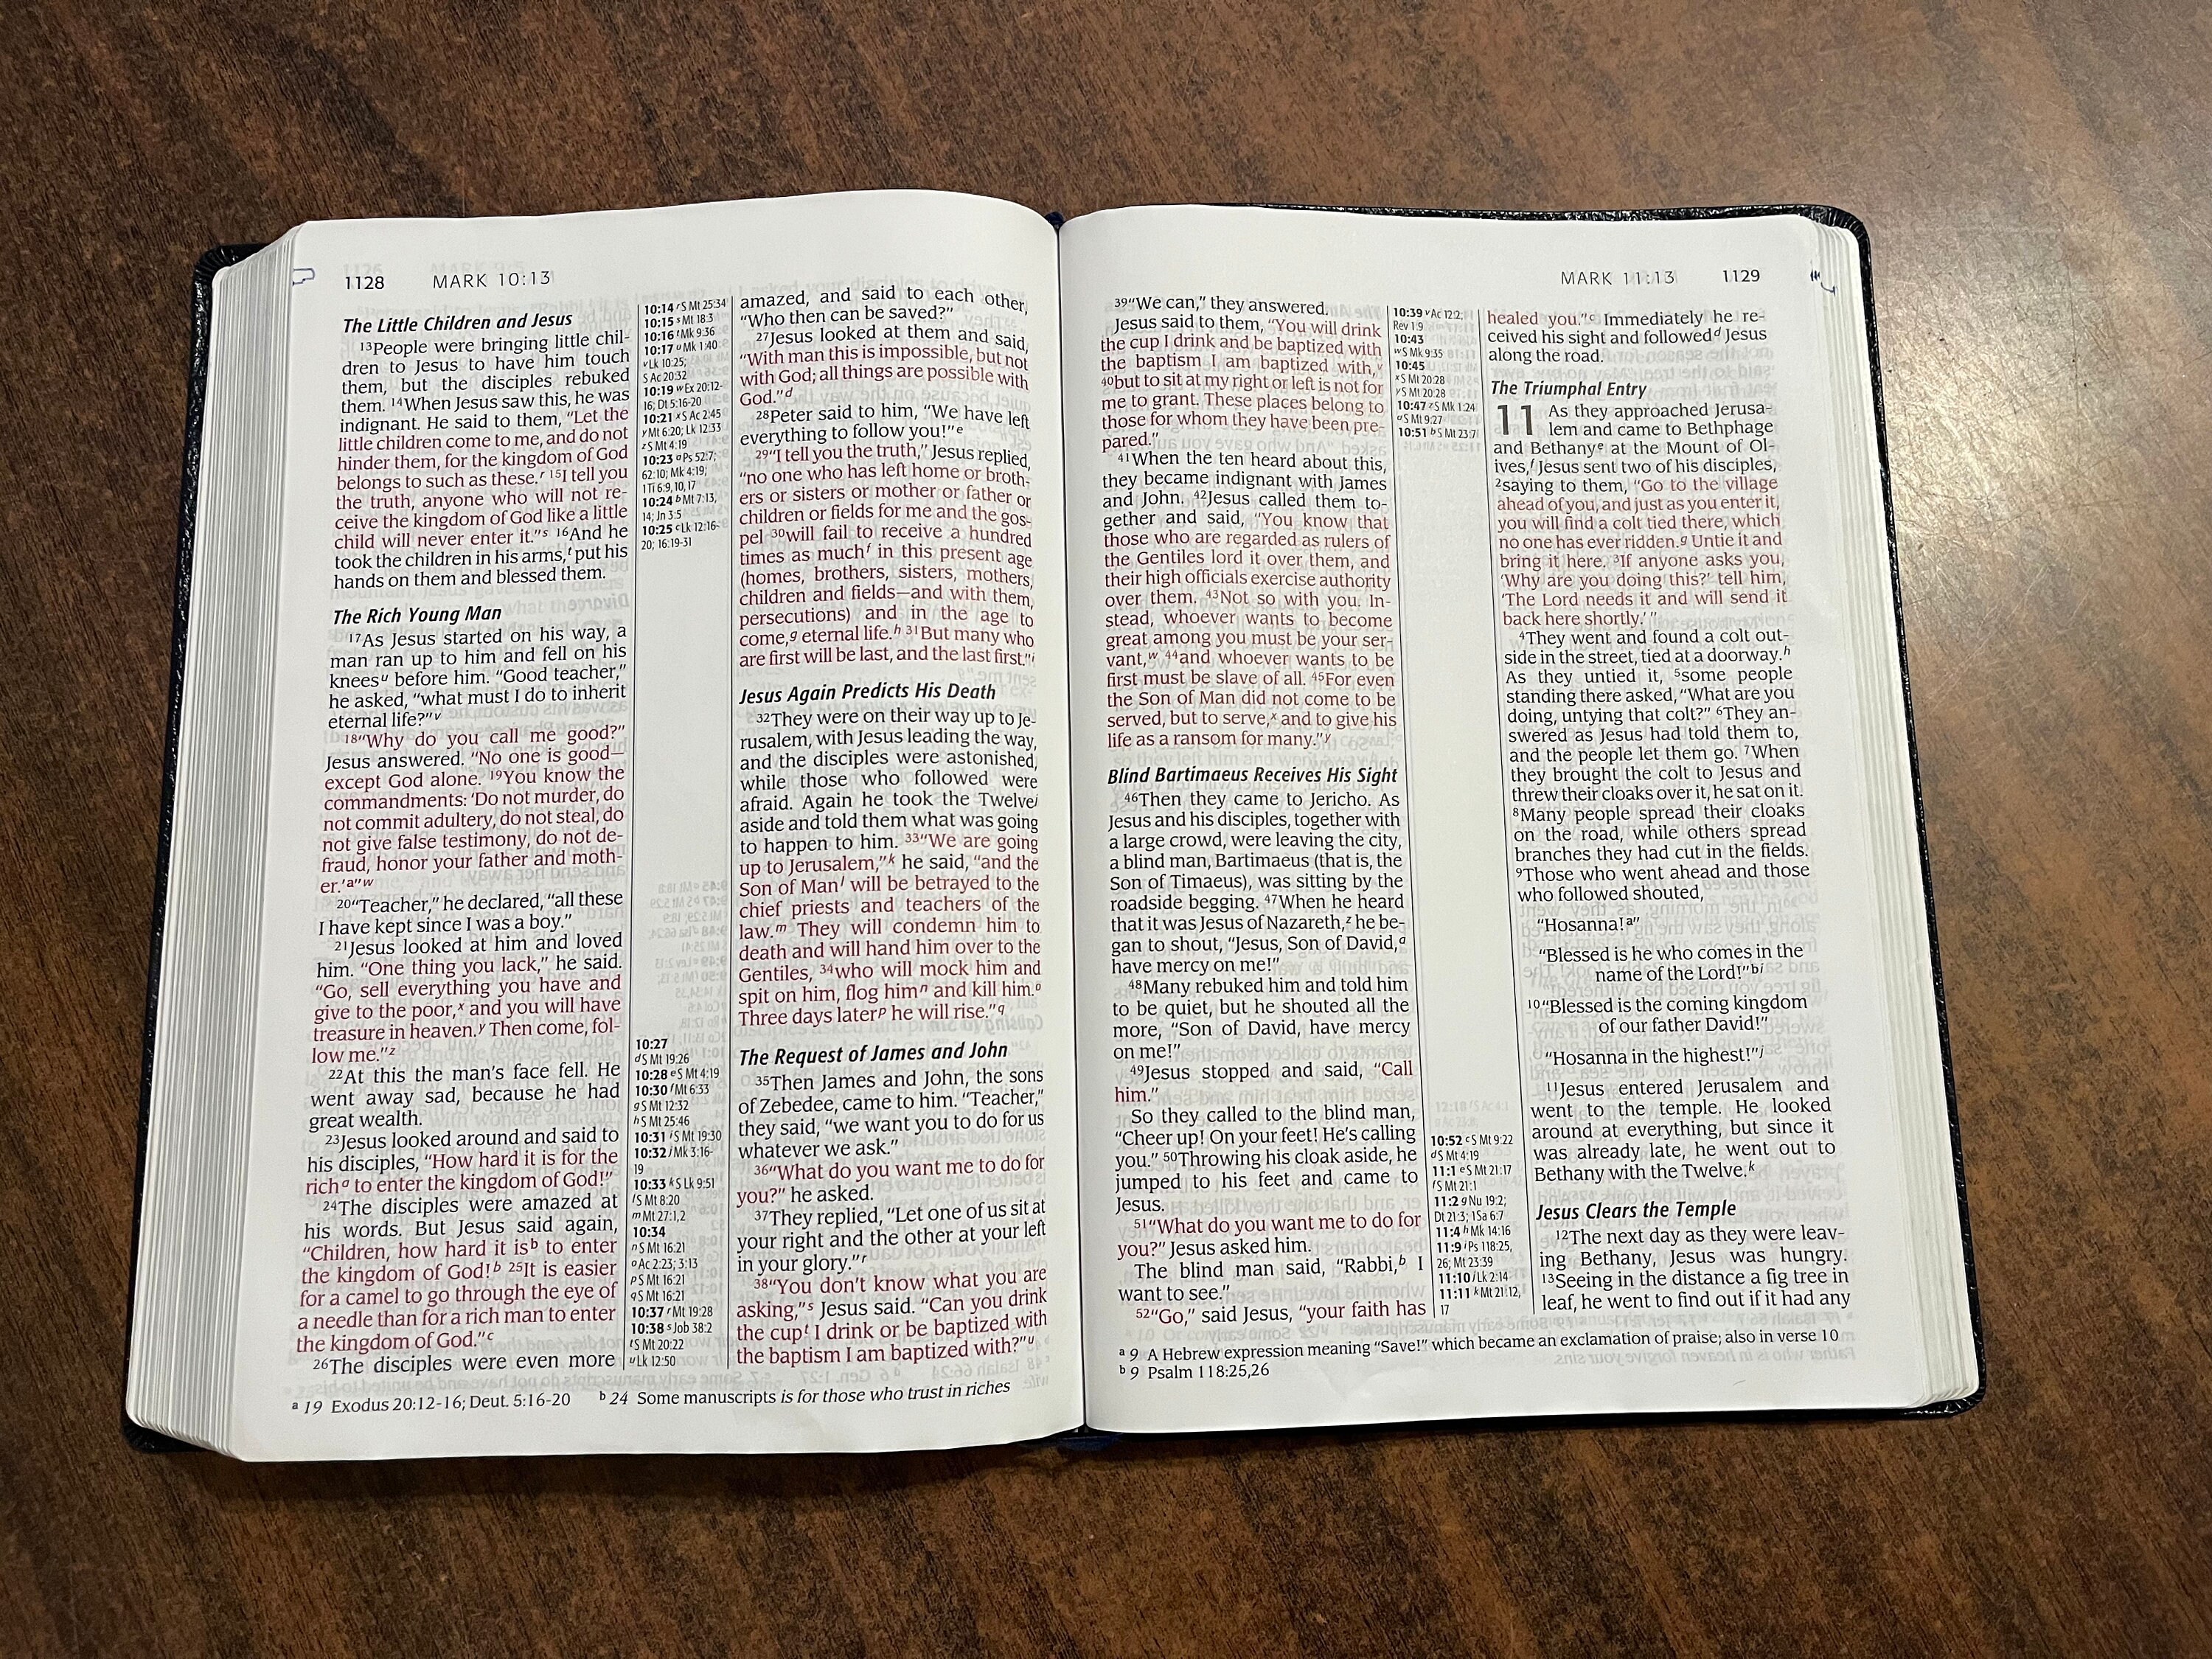 1128 MARK 10:13
The Little Children and Jesus
13People were bringing little chil-
dren to Jesus to have him touch
them, but the disciples rebuked
them. 14When Jesus saw this, he was
indignant. He said to them, “Let the
little children come to me, and do not
hinder them, for the kingdom of God
belongs to such as these.r 15I tell you
the truth, anyone who will not re-
ceive the kingdom of God like a little
child will never enter it.”s 16And he
took the children in his arms,t put his
hands on them and blessed them.
The Rich Young Man
17As Jesus started on his way, a
man ran up to him and fell on his
kneesu before him. “Good teacher,”
he asked, “what must I do to inherit
eternal life?”v
18“Why do you call me good?”
Jesus answered. “No one is good—
except God alone. 19You know the
commandments: ‘Do not murder, do
not commit adultery, do not steal, do
not give false testimony, do not de-
fraud, honor your father and moth-
er.’a”w
20“Teacher,” he declared, “all these
I have kept since I was a boy.”
21Jesus looked at him and loved
him. “One thing you lack,” he said.
“Go, sell everything you have and
give to the poor,x and you will have
treasure in heaven.y Then come, fol-
low me.”z
22At this the man’s face fell. He
went away sad, because he had
great wealth.
23Jesus looked around and said to
his disciples, “How hard it is for the
richa to enter the kingdom of God!”
24The disciples were amazed at
his words. But Jesus said again,
“Children, how hard it isb to enter
the kingdom of God!b 25It is easier
for a camel to go through the eye of
a needle than for a rich man to enter
the kingdom of God.”c
26The disciples were even more
10:14 rS Mt 25:34
10:15 sMt 18:3
10:16 tMk 9:36
10:17 uMk 1:40
vLk 10:25;
S Ac 20:32
10:19 wEx 20:12-
16; Dt 5:16-20
10:21 xS Ac 2:45
yMt 6:20; Lk 12:33
zS Mt 4:19
10:23 aPs 52:7;
62:10; Mk 4:19;
1Ti 6:9,10,17
10:24 bMt 7:13,
14; Jn 3:5
10:25 cLk 12:16-
20; 16:19-31
10:27
dS Mt 19:26
10:28 eS Mt 4:19
10:30 fMt 6:33
gS Mt 12:32
hS Mt 25:46
10:31 iS Mt 19:30
10:32 jMk 3:16-
19
10:33 kS Lk 9:51
lS Mt 8:20
mMt 27:1,2
10:34
nS Mt 16:21
oAc 2:23; 3:13
pS Mt 16:21
qS Mt 16:21
10:37 rMt 19:28
10:38 sJob 38:2
tS Mt 20:22
uLk 12:50
amazed, and said to each other,
“Who then can be saved?”
27Jesus looked at them and said,
“With man this is impossible, but not
with God; all things are possible with
God.”d
28Peter said to him, “We have left
everything to follow you!”e
29“I tell you the truth,” Jesus replied,
“no one who has left home or broth-
ers or sisters or mother or father or
children or fields for me and the gos-
pel 30will fail to receive a hundred
times as muchf in this present age
(homes, brothers, sisters, mothers,
children and fields—and with them,
persecutions) and in the age to
come,g eternal life.h 31But many who
are first will be last, and the last first.”i
Jesus Again Predicts His Death
32They were on their way up to Je-
rusalem, with Jesus leading the way,
and the disciples were astonished,
while those who followed were
afraid. Again he took the Twelvej
aside and told them what was going
to happen to him. 33“We are going
up to Jerusalem,”k he said, “and the
Son of Manl will be betrayed to the
chief priests and teachers of the
law.m They will condemn him to
death and will hand him over to the
Gentiles, 34who will mock him and
spit on him, flog himn and kill him.o
Three days laterp he will rise.”q
The Request of James and John
35Then James and John, the sons
of Zebedee, came to him. “Teacher,”
they said, “we want you to do for us
whatever we ask.”
36“What do you want me to do for
you?” he asked.
37They replied, “Let one of us sit at
your right and the other at your left
in your glory.”r
38“You don’t know what you are
asking,”s Jesus said. “Can you drink
the cupt I drink or be baptized with
the baptism I am baptized with?”u
a 19 Exodus 20:12-16; Deut. 5:16-20 b 24 Some manuscripts is for those who trust in riches
MARK 11:13 1129
39“We can,” they answered.
Jesus said to them, “You will drink
the cup I drink and be baptized with
the baptism I am baptized with,v
40but to sit at my right or left is not for
me to grant. These places belong to
those for whom they have been pre-
pared.”
41When the ten heard about this,
they became indignant with James
and John. 42Jesus called them to-
gether and said, “You know that
those who are regarded as rulers of
the Gentiles lord it over them, and
their high officials exercise authority
over them. 43Not so with you. In-
stead, whoever wants to become
great among you must be your ser-
vant,w 44and whoever wants to be
first must be slave of all. 45For even
the Son of Man did not come to be
served, but to serve,x and to give his
life as a ransom for many.”y
Blind Bartimaeus Receives His Sight
46Then they came to Jericho. As
Jesus and his disciples, together with
a large crowd, were leaving the city,
a blind man, Bartimaeus (that is, the
Son of Timaeus), was sitting by the
roadside begging. 47When he heard
that it was Jesus of Nazareth,z he be-
gan to shout, “Jesus, Son of David,a
have mercy on me!”
48Many rebuked him and told him
to be quiet, but he shouted all the
more, “Son of David, have mercy
on me!”
49Jesus stopped and said, “Call
him.”
So they called to the blind man,
“Cheer up! On your feet! He’s calling
you.” 50Throwing his cloak aside, he
jumped to his feet and came to
Jesus.
51“What do you want me to do for
you?” Jesus asked him.
The blind man said, “Rabbi,b I
want to see.”
52“Go,” said Jesus, “your faith has
10:39 vAc 12:2;
Rev 1:9
10:43
wS Mk 9:35
10:45
xS Mt 20:28
yS Mt 20:28
10:47 zS Mk 1:24
aS Mt 9:27
10:51 bS Mt 23:7
10:52 cS Mt 9:22
dS Mt 4:19
11:1 eS Mt 21:17
fS Mt 21:1
11:2 gNu 19:2;
Dt 21:3; 1Sa 6:7
11:4 hMk 14:16
11:9 iPs 118:25,
26; Mt 23:39
11:10 jLk 2:14
11:11 kMt 21:12,
17
healed you.”c Immediately he re-
ceived his sight and followedd Jesus
along the road.
The Triumphal Entry
11 As they approached Jerusa-
lem and came to Bethphage
and Bethanye at the Mount of Ol-
ives,f Jesus sent two of his disciples,
2saying to them, “Go to the village
ahead of you, and just as you enter it,
you will find a colt tied there, which
no one has ever ridden.g Untie it and
bring it here. 3If anyone asks you,
‘Why are you doing this?’ tell him,
‘The Lord needs it and will send it
back here shortly.’”
4They went and found a colt out-
side in the street, tied at a doorway.h
As they untied it, 5some people
standing there asked, “What are you
doing, untying that colt?” 6They an-
swered as Jesus had told them to,
and the people let them go. 7When
they brought the colt to Jesus and
threw their cloaks over it, he sat on it.
8Many people spread their cloaks
on the road, while others spread
branches they had cut in the fields.
9Those who went ahead and those
who followed shouted,
“Hosanna!a”
“Blessed is he who comes in the
name of the Lord!”bi
10“Blessed is the coming kingdom
of our father David!”
“Hosanna in the highest!”j
11Jesus entered Jerusalem and
went to the temple. He looked
around at everything, but since it
was already late, he went out to
Bethany with the Twelve.k
Jesus Clears the Temple
12The next day as they were leav-
ing Bethany, Jesus was hungry.
13Seeing in the distance a fig tree in
leaf, he went to find out if it had any
a 9 A Hebrew expression meaning “Save!” which became an exclamation of praise; also in verse 10
b 9 Psalm 118:25,26